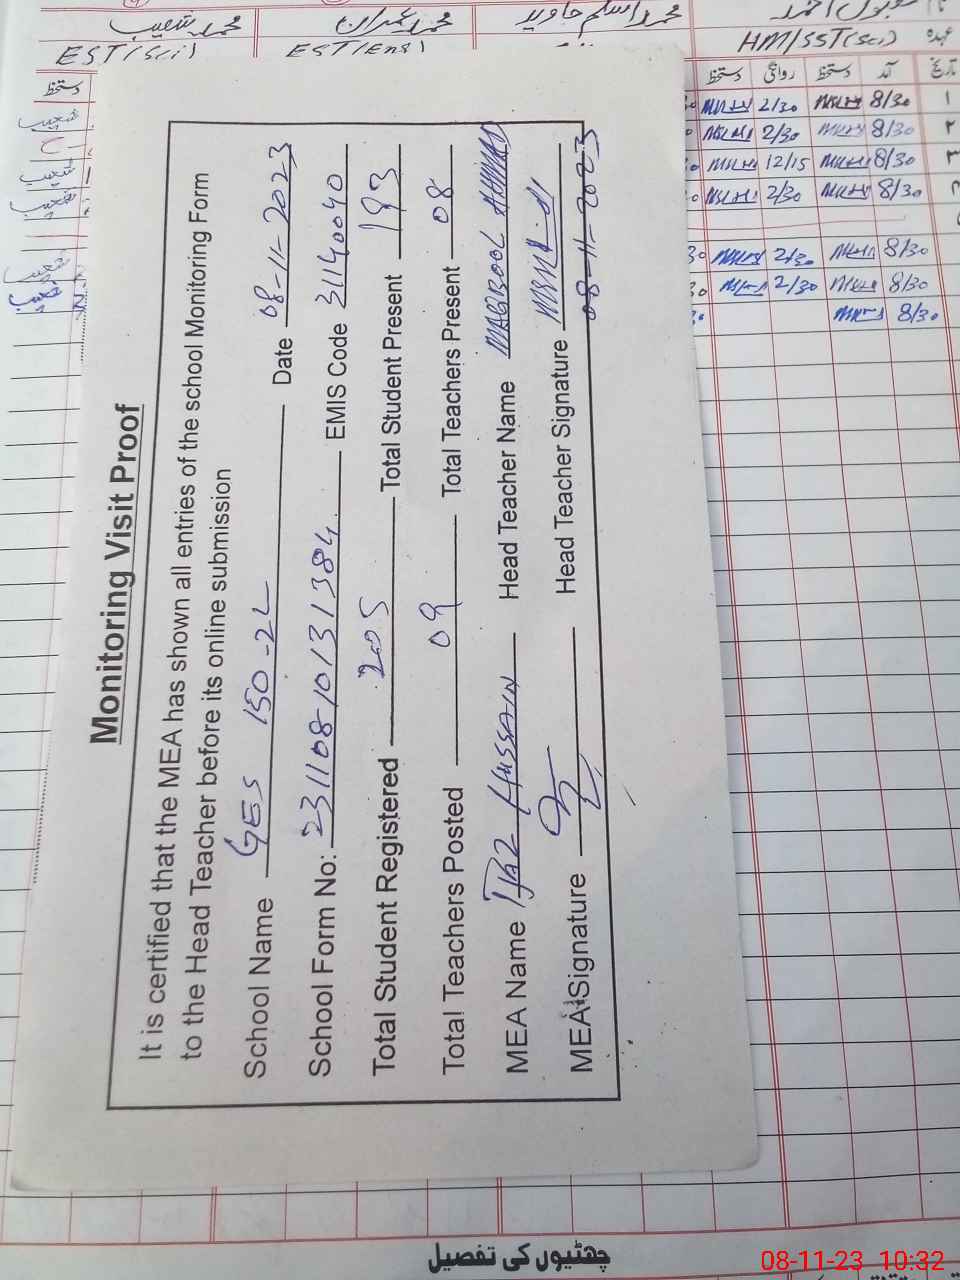 محمد شعیب محمد عمران محمد اسلم جاوید مقبول احمد نام
EST(Sci) EST(Eng) HM/SST(Sci) عہدہ
دستخط دستخط روانگی دستخط آمد تاریخ
2/30 8/30 ۱
2/30 8/30 ۲
12/15 8/30 ۳
2/30 8/30
2/30 8/30
2/30 8/30
8/30
Monitoring Visit Proof
It is certified that the MEA has shown all entries of the school Monitoring Form
to the Head Teacher before its online submission
School Name GES 150-2L Date 08-11-2023
School Form No: 231108-10131384 EMIS Code 31140040
Total Student Registered 205 Total Student Present 193
Total Teachers Posted 09 Total Teachers Present 08
MEA Name Ijaz Hussain Head Teacher Name MAQBOOL AHMAD
MEA Signature Head Teacher Signature
08-11-2023
چھٹیوں کی تفصیل
08-11-23 10:32